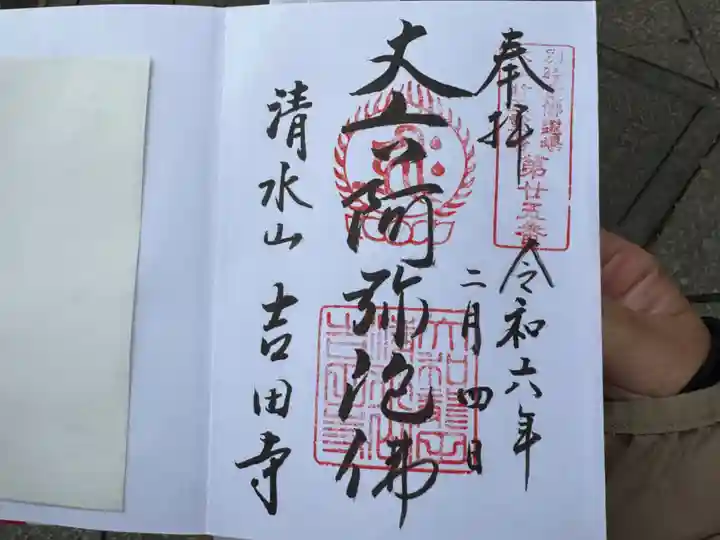 奉拝
第廿五番
令和六年
二月四日
丈六阿弥陀佛
清水山 吉田寺